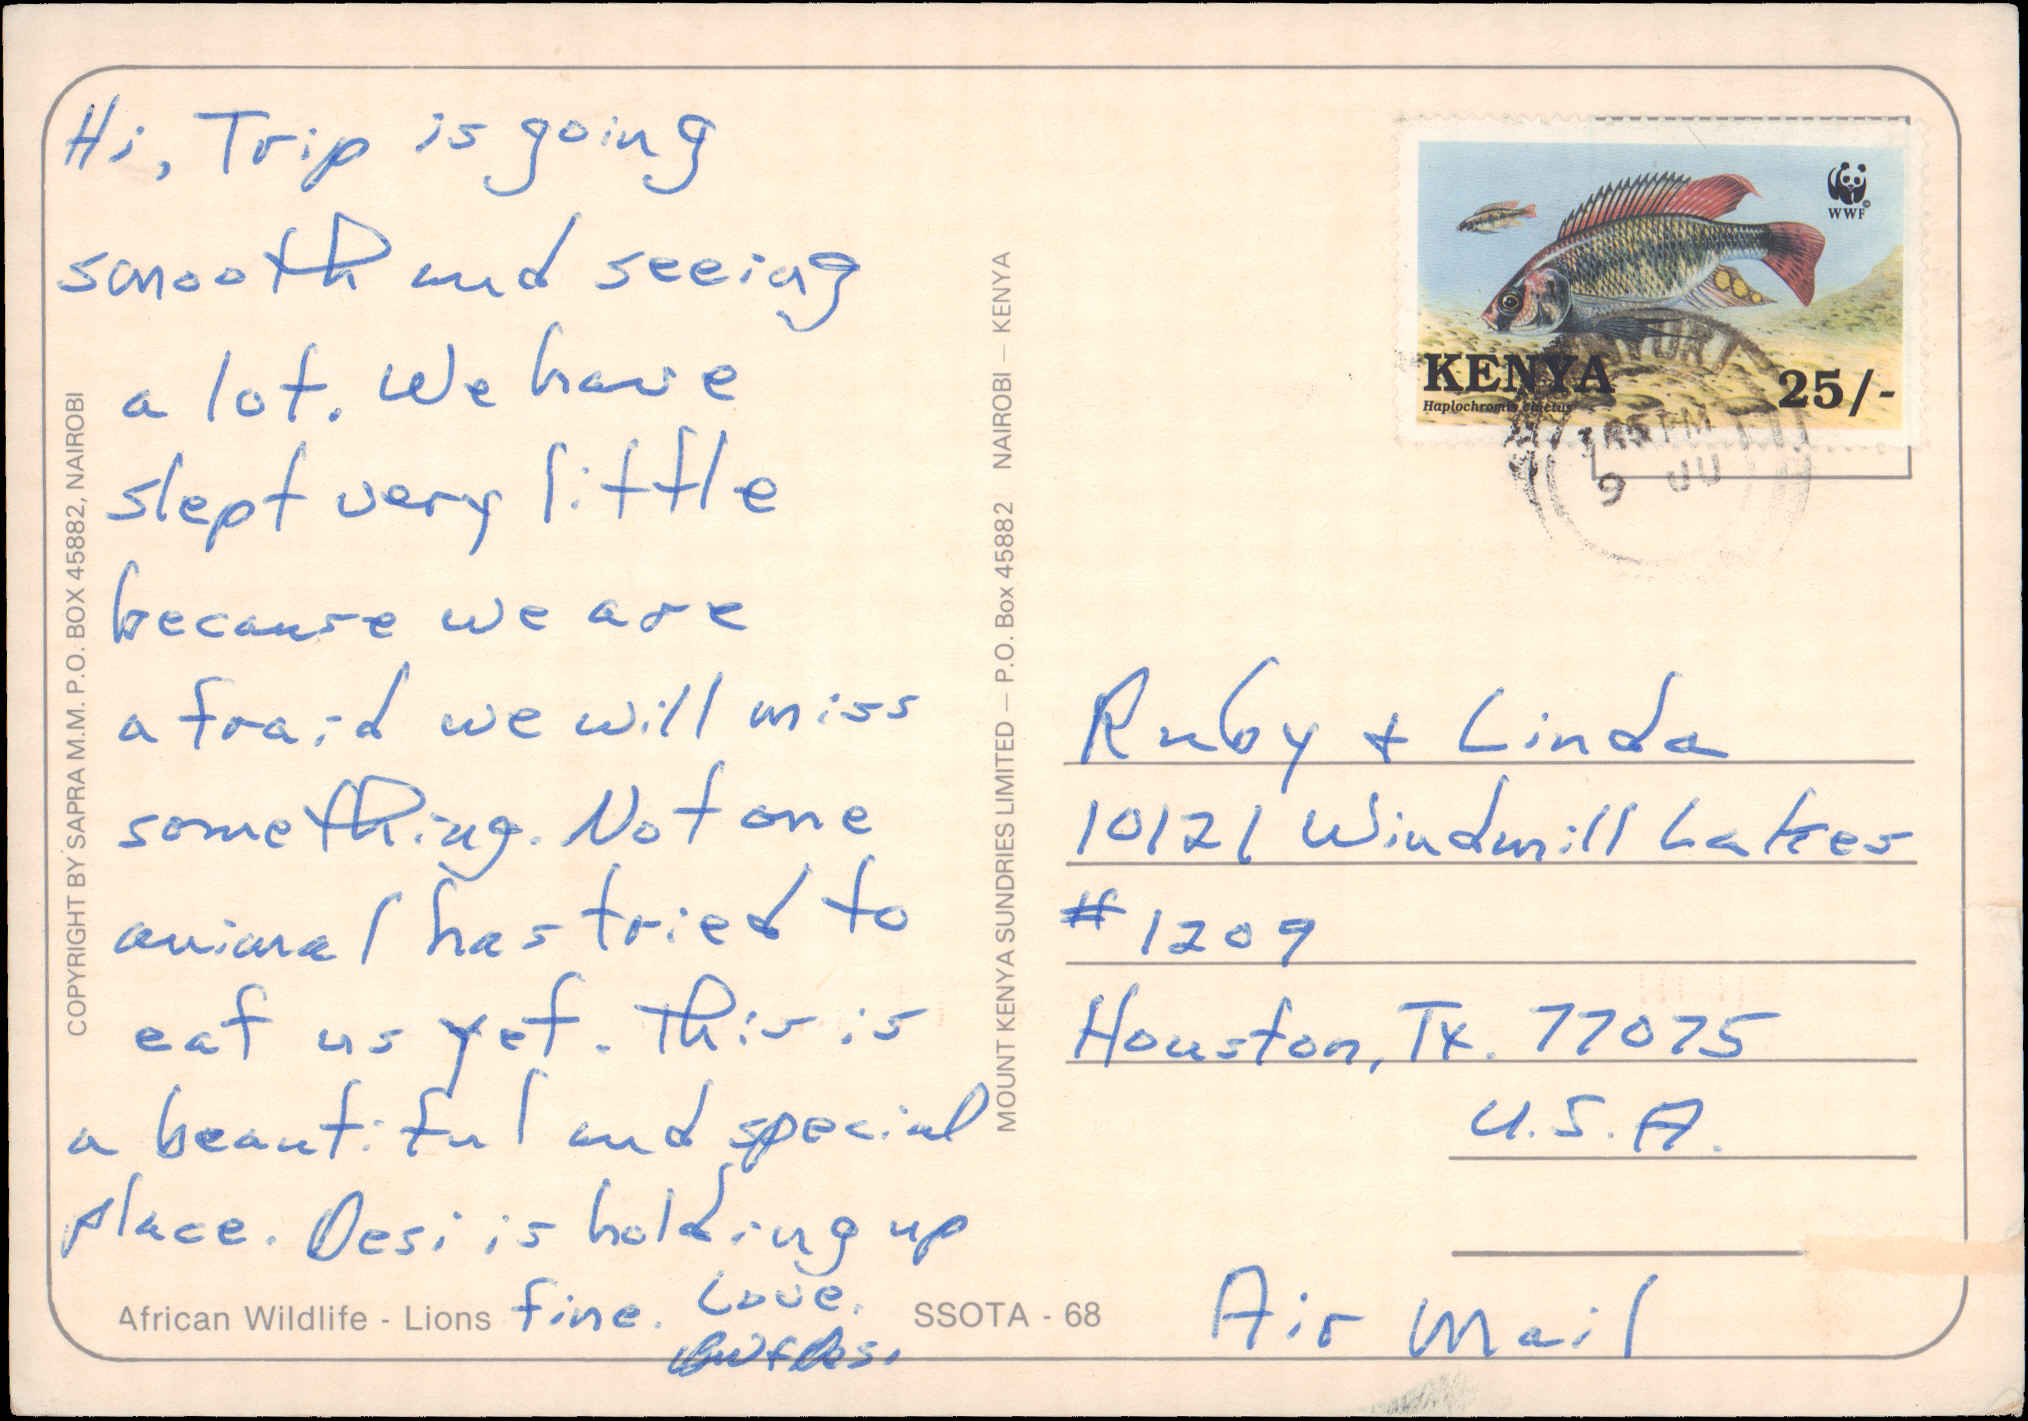 Hi, Trip is going
smooth and seeing
a lot. We have
slept very little
because we are
afraid we will miss
something. Not one
animal has tried to
eat us yet. This is
a beautiful and special
place. Desi is holding up
fine. Love.
African Wildlife - Lions
SSOTA - 68
COPYRIGHT BY SAPRA M.M. P.O. BOX 45882, NAIROBI
MOUNT KENYA SUNDRIES LIMITED — P.O. Box 45882 NAIROBI — KENYA
WWF
©
KENYA
25/-
Haplochromis
9
Ruby + Linda
10121 Windmill Lakes
#1209
Houston, Tx. 77075
U.S.A.
Air Mail